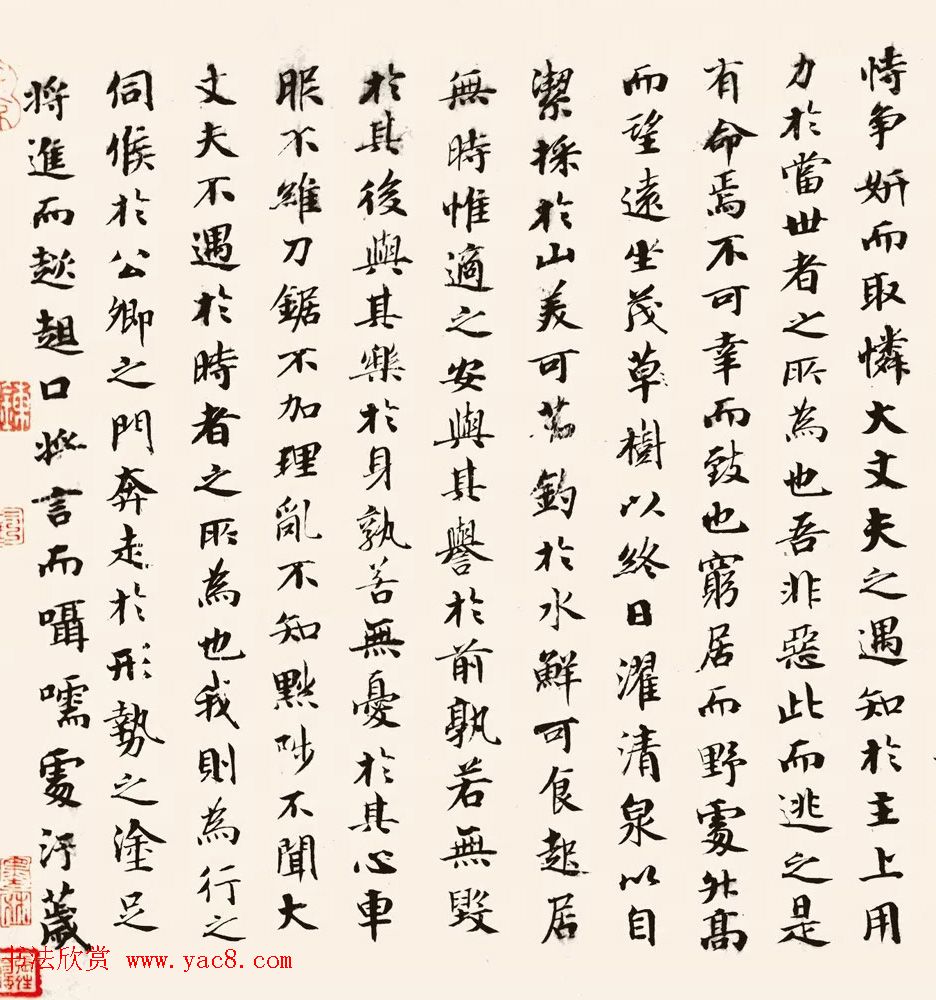 恃争妍而取憐大丈夫之遇知於主上用
力於當世者之所為也吾非惡此而逃之是
有命焉不可幸而致也窮居而野處升高
而望遠坐茂草樹以終日濯清泉以自
潔採於山美可茹釣於水鮮可食起居
無時惟適之安與其譽於前孰若無毀
於其後與其樂於身孰若無憂於其心車
服不維刀鋸不加理亂不知黜陟不聞大
丈夫不遇於時者之所為也我則為行之
伺候於公卿之門奔走於形勢之塗足
将進而趑趄口将言而囁嚅處汙薉
书法欣赏 www.yac8.com